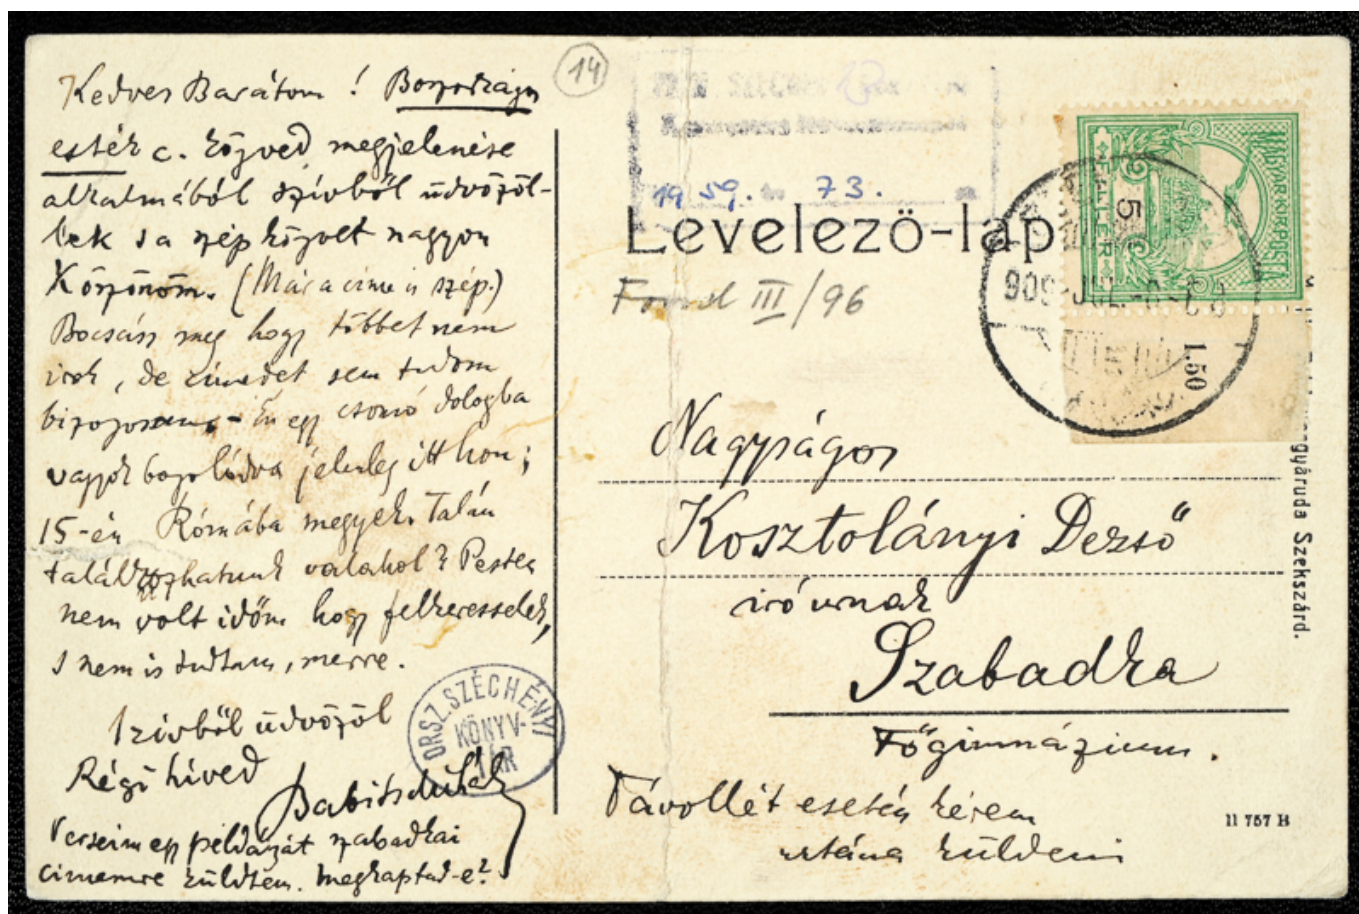 Kedves Barátom! Boszorkányos
esték c. könyved megjelenése
alkalmából szívből üdvözöl-
lek s a szép könyvet nagyon
Köszönöm. (Már a címe is szép.)
Bocsáss meg hogy többet nem
irok, de címedet sem tudom
bizonyosan. - Én egy csomó dologba
vagyok bogolódva jelenleg itthon;
15-én Rómába megyek. Talán
találkozhatunk valahol? Pesten
nem volt időm hogy felkeresselek,
s nem is tudtam, merre.
Szívből üdvözöl
Régi híved
Babits Mihály
Verseim egy példányát szabadkai
címemre küldtem. Megkaptad-e?
14
1959. 73.
Levelező-lap
Fond III/96
MAGYAR KIR. POSTA
5
FILLÉR
909 JUL
1.50
Nagyságos
Kosztolányi Dezső
író urnak
Szabadka
Főgimnázium.
Távollét esetén kérem
utána küldeni
ORSZ. SZÉCHÉNYI
KÖNYV-
TÁR
Szekszárd.
11 757 B